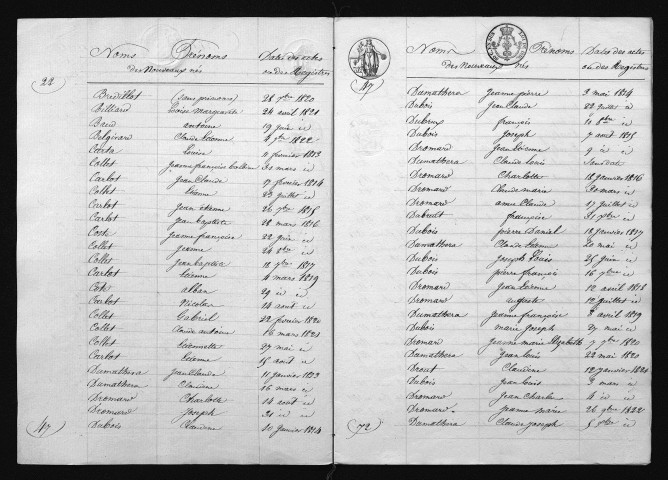 Noms Prénoms Dates des actes
des Nouveaux nés ou des Registres
22
Bredillot (sans prénoms) 28 9bre 1820
Billard Loise Marguerite 24 avril 1821
Baud antoine 19 juin id
Belgirard Claude Etienne 4 9bre 1822
Louise 11 février 1813
Collet jeanne françoise 30 mars id
Carbot jean Claude 17 février 1814
Collet Etienne 23 juillet id
Carbot jean étienne 26 9bre 1815
Carbot jean baptiste 28 mars 1816
Coste jeanne françoise 22 juin id
Collet jeanne 24 8bre id
Collet jean baptiste 18 9bre 1817
Carbot Etienne 4 mars 1819
Coste alban 29 id id
Carbot Nicolas 14 aout id
Collet Gabriel 22 février 1820
Collet Claude antoine 16 mars 1821
Collet Etiennette 27 mai id
Carbot Etienne 15 aout id
Damathera jean Claude 11 janvier 1813
Damathera Claudine 16 mars id
Dromard Charlotte 14 aout id
Dromard Joseph 31 id id
47 Dubois Claudine 30 janvier 1814
Noms Prénoms Dates des actes
des Nouveaux nés ou des Registres
47
Damathera Jeanne pierre 3 mai 1814
Dubois jean Claude 22 juillet id
françois id
Dubois Joseph 7 avril 1815
Dromard jean Etienne 9 id id
Damathera Claude louis
Dromard Charlotte 18 janvier 1816
Dromard Claude marie 30 mars id
Dromard anne Claude 17 juillet id
françoise id
Dubois pierre Daniel 18 janvier 1817
Damathera Claude Etienne 20 mai id
Dubois Joseph Louis 25 juin id
Dubois pierre françois 16 9bre id
Dromard jean Etienne 12 avril 1818
Dromard auguste 12 juillet id
Damathera jeanne françoise 3 avril 1819
Dubois marie Joseph 27 mai id
Dromard jeanne marie Elizabeth 7 9bre 1820
Damathera jean louis 22 mai 1820
Drout Claudine 12 janvier 1821
Dubois jean louis 3 mars id
Dromard jean Charles 4 id id
Dromard jeanne marie 26 9bre 1822
72 Damathera Claude joseph id